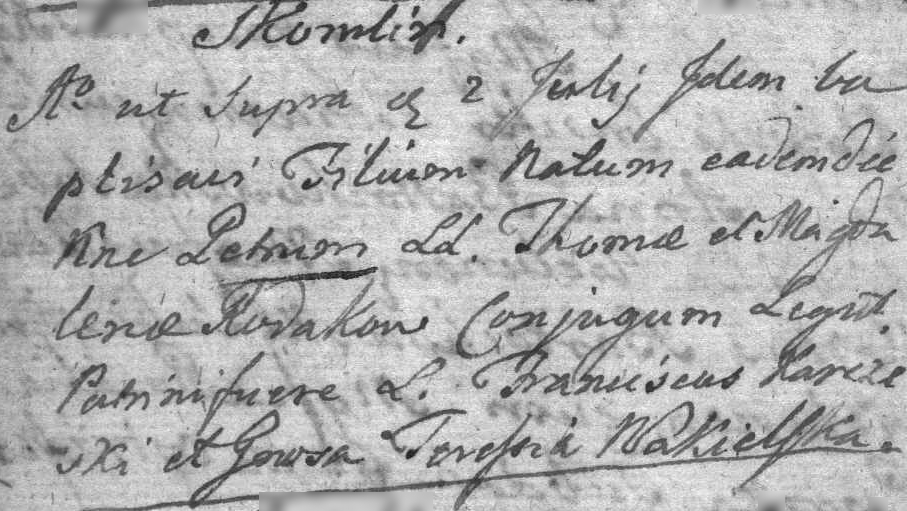 Skomlin.
Ao ut Supra d 2 Julij Jdem ba
ptisavi Filium Natum eadem die
Nne Petrum LL. Thomæ et Magda
lenæ Kodakow Conjugum Legitt.
Patrini fuere L. Franciscus Karcze
ski et Gnosa Teressia Nakielska.